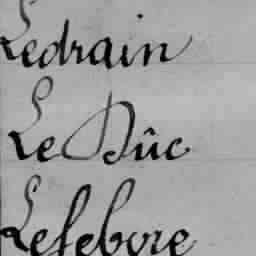 Ledrain
Le Dûc
Lefebvre